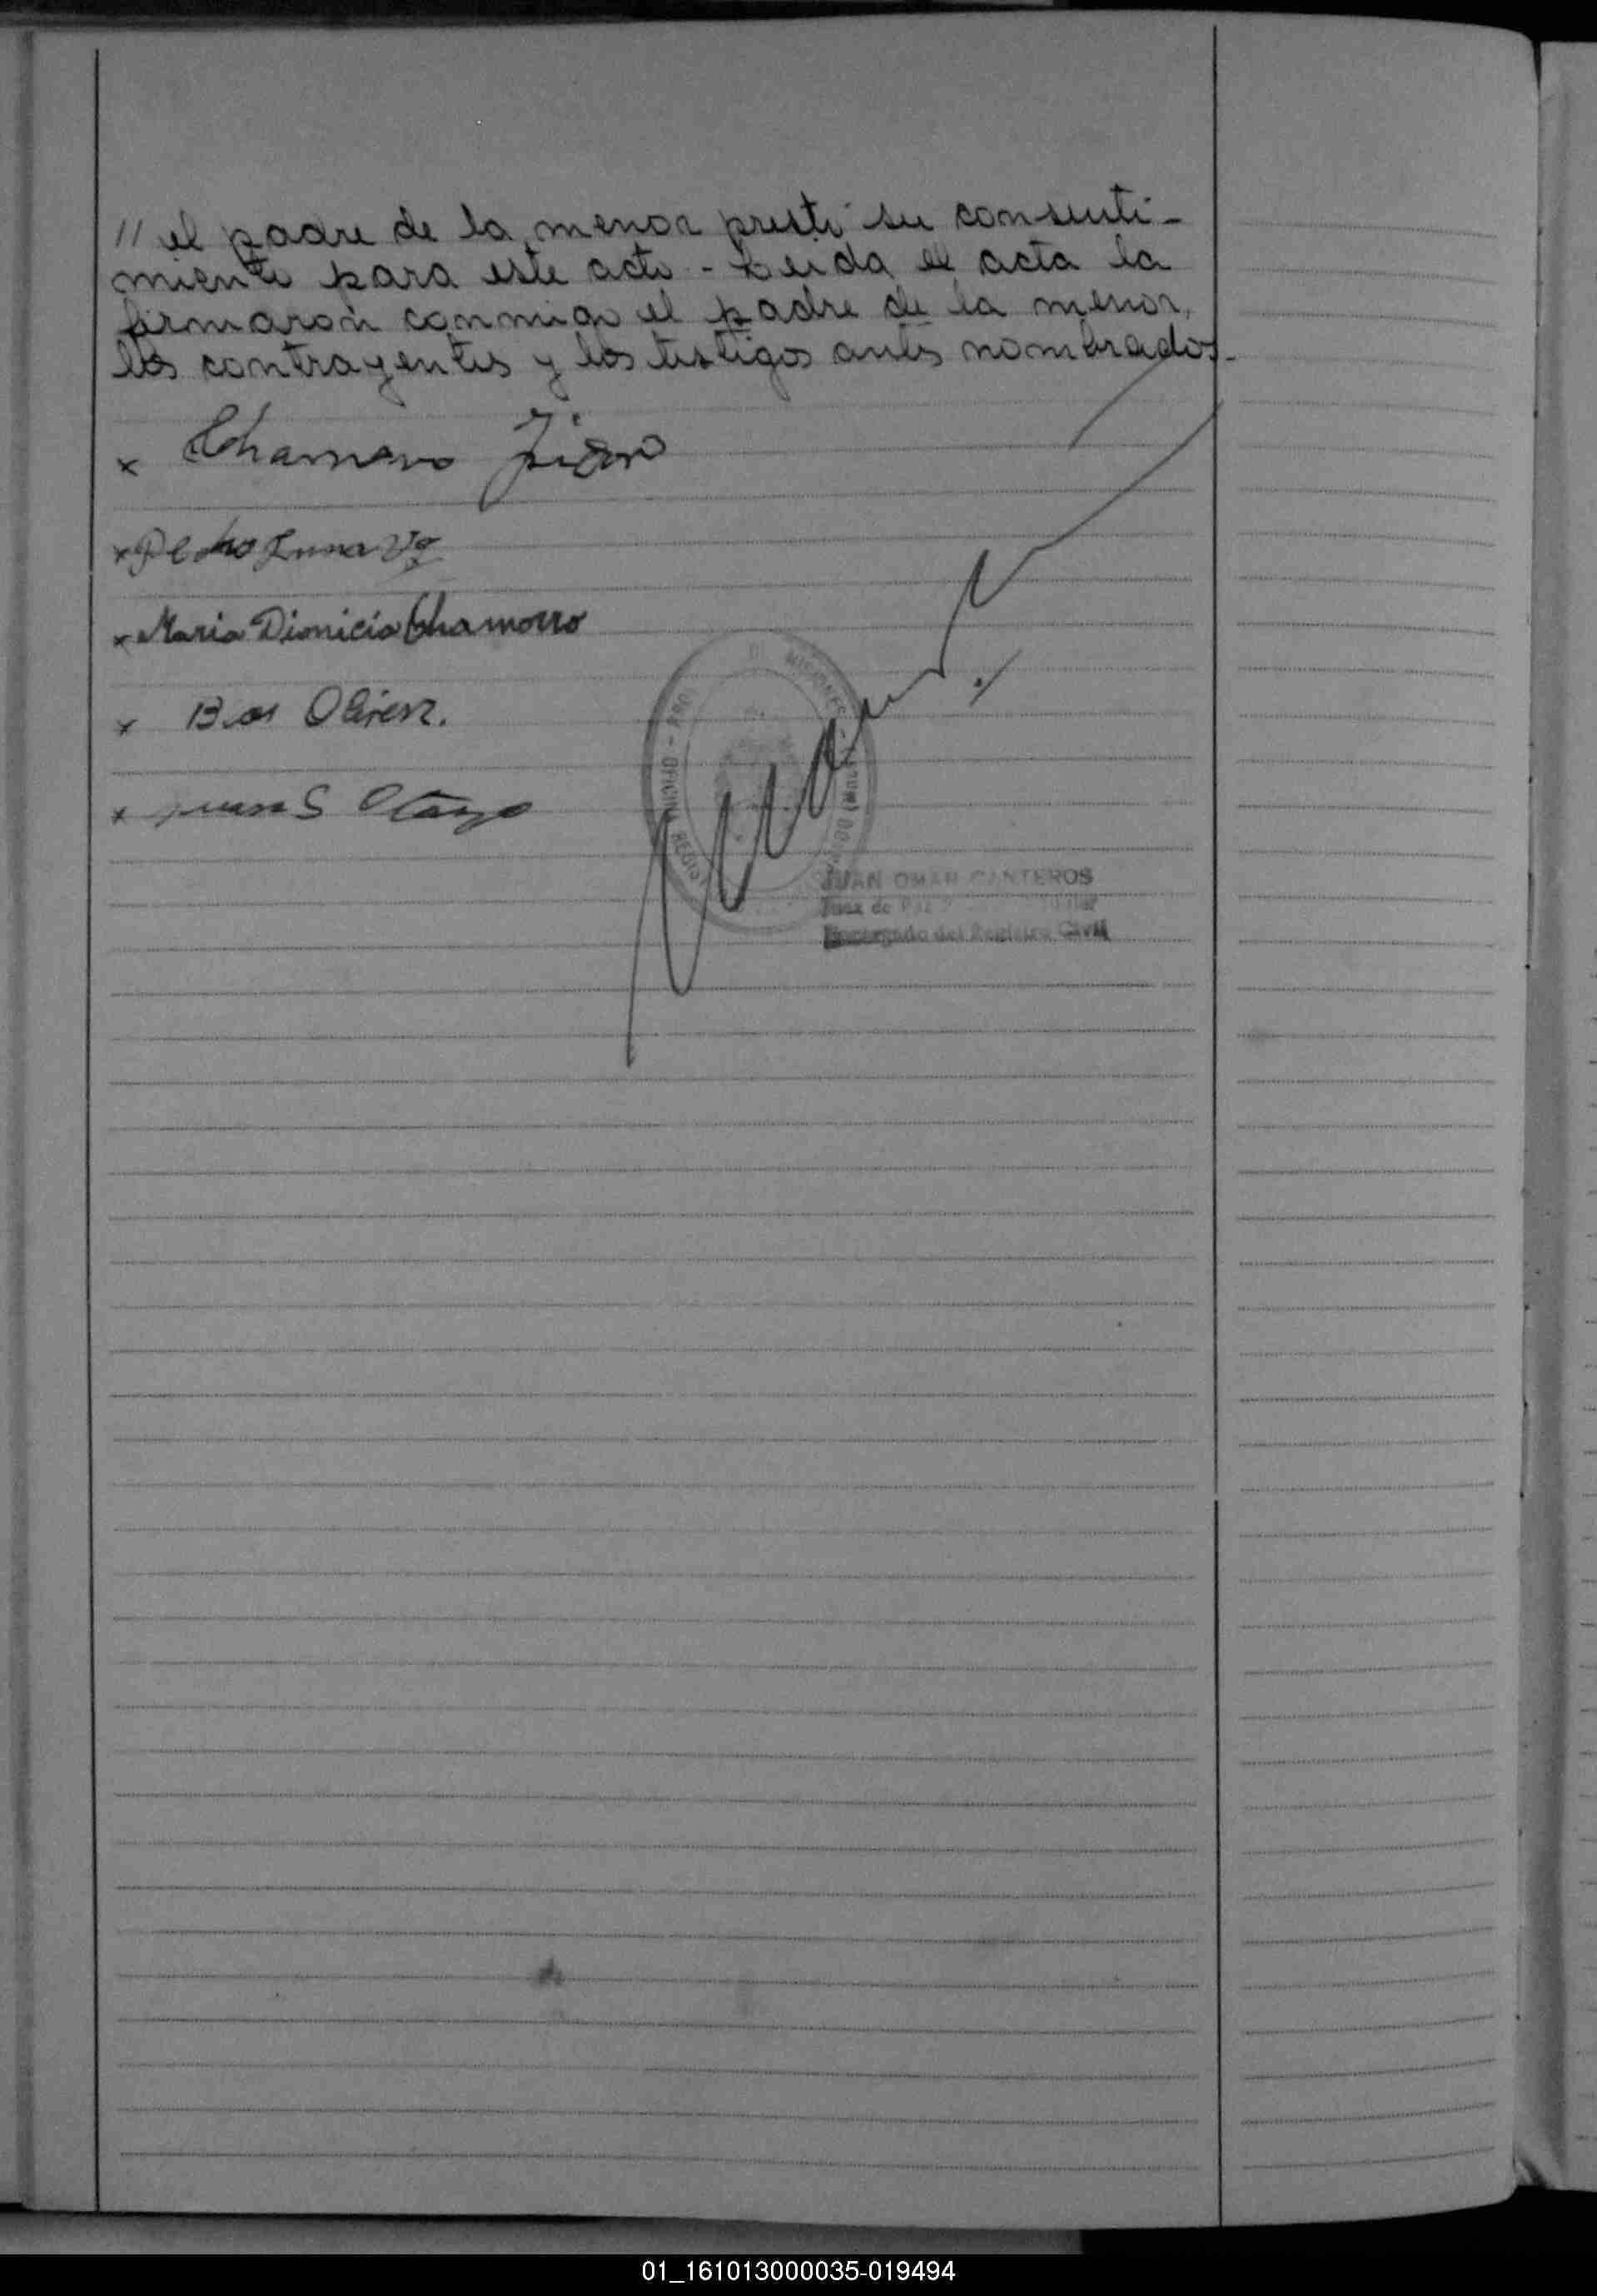 // el padre de la menor prestó su consenti-
miento para este acto - Leida el acta la
firmaron conmigo el padre de la menor,
los contrayentes y los testigos antes nombrados.-
x Chamorro
x Pedro Luna
x Maria Dionicia Chamorro
x
x Juan S
MISIONES
OFICINA REGIST
JUAN OMAR CANTEROS
Juez de Paz
Encargado del Registro Civil
01_161013000035-019494